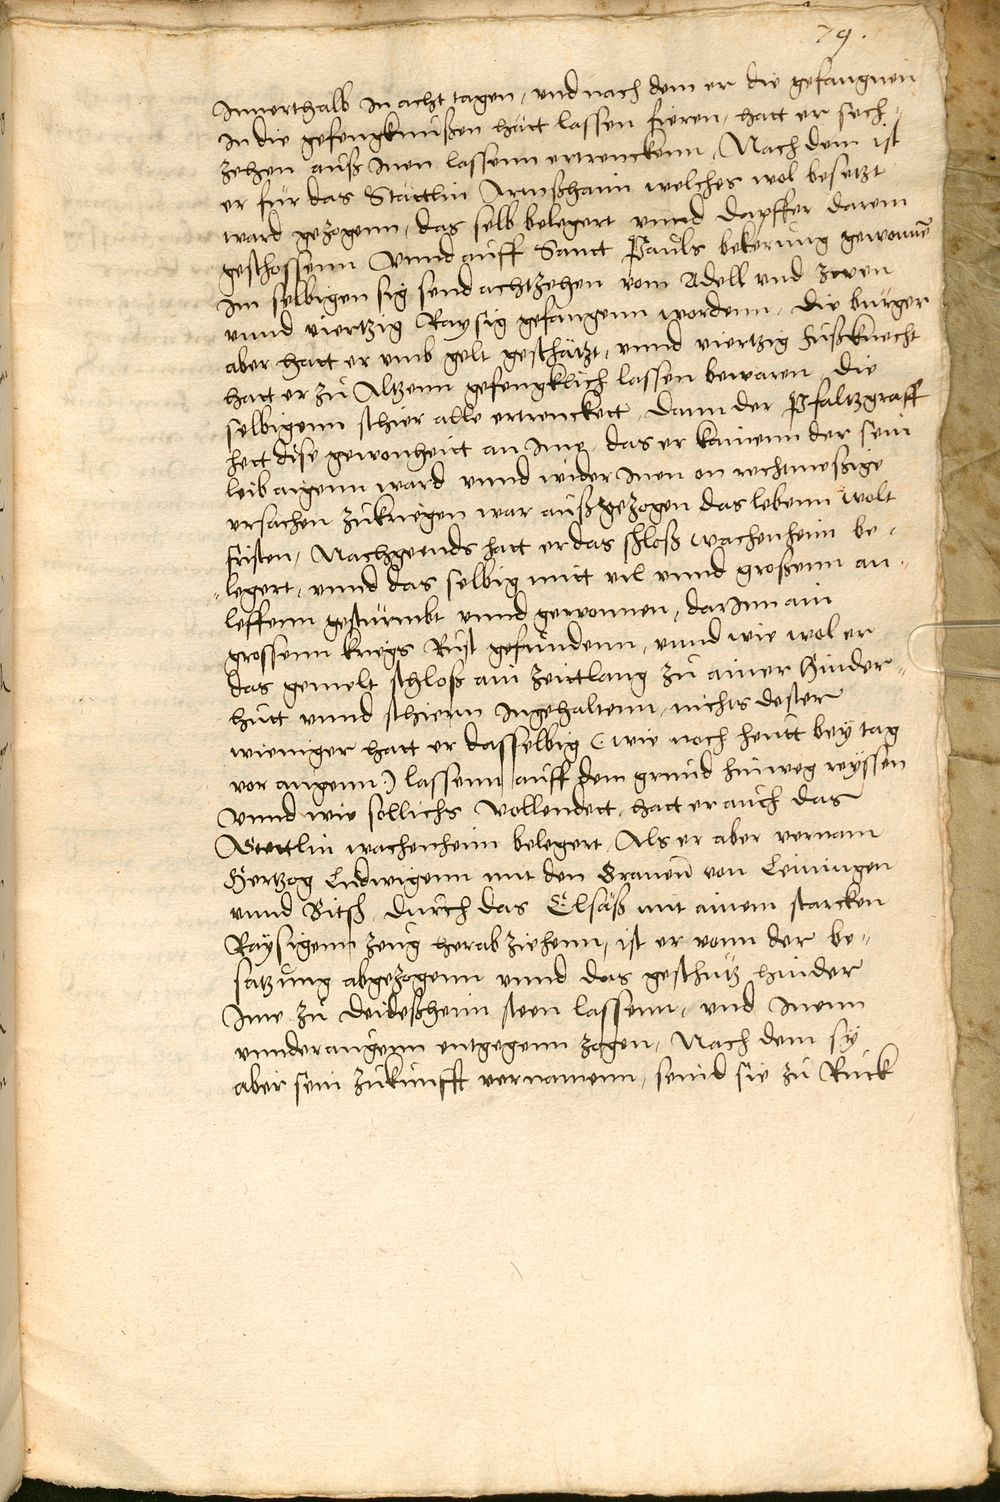 79.
Innerthalb In acht tagen, vnd nach dem er die gefangnen
In die gefengknußen hatt lassen fieren, hatt er sech„
zehen auß Inen lassenn ertrenckenn, Nach dem ist
er für das Stättlin Armßhaim welches wol besetzt
ward gezogenn, das selb belegert vnnd dapffer darein
geschossenn Vnnd auff Sanct Pauls bekerung gewonnē
Im selbigen sig send achtzehen vom Adell vnd zwen
vnnd viertzig Raysig gefangenn wordenn, die burger
aber hatt er vmb gelt geschätzt, vnnd viertzig Fußknecht
hatt er zu Altzenn gefengklich lassen bewaren, die
selbigenn schier alle ertrenckett, dann der Pfaltzgraff
hett dise gewonheitt an Ime, das er kainenn der sein
leib aigenn ward vnnd wider Inen on rechtmeßige
vrsachen zukriegen war außgezogen das lebenn wolt
fristen, Nachgeends hatt er das schloß wachenheim be„
„legert, vnnd das selbig mitt vil vnnd großenn an„
leffenn gesturmbt vnnd gewonnen, dar Inn ain
grossenn kriegs Rust gefundenn, vnnd wie wol er
das gemelt schloß ain zeittlang zu ainer Hinder„
hutt vnnd schierm Ingehaltenn, nichts dester
wieniger hatt er dasselbig (wie noch heutt bey tag
vor augenn) lassenn auff dem grund hinweg reyssen
Vnnd wie sollichs vollendett, hatt er auch das
Stettlin wachenheim belegert, Als er aber vernam
Hertzog Ludwigenn mit den Grauenn von Leiningen
vnnd Bitsch, durch das Elsäß mit ainem starcken
Raysigenn zeug herab ziehenn, ist er vonn der be„
satzung abgezogenn vnnd das geschutz hinder
Ime zu deideßheim steen lassenn, vnd Inenn
vnnder augenn entgegenn zogen, Nach dem sy
aber sein zukunfft vernamenn, seind sie zu Ruck